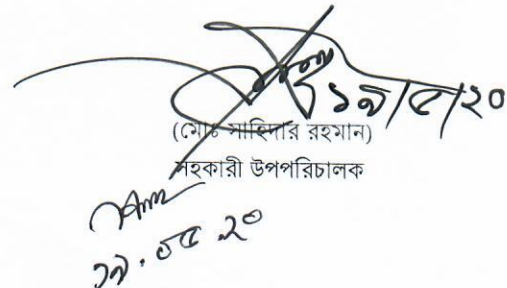 ১৯/৫/২০
(মোঃ সাহিদার রহমান)
সহকারী উপপরিচালক
১৯.০৫.২০